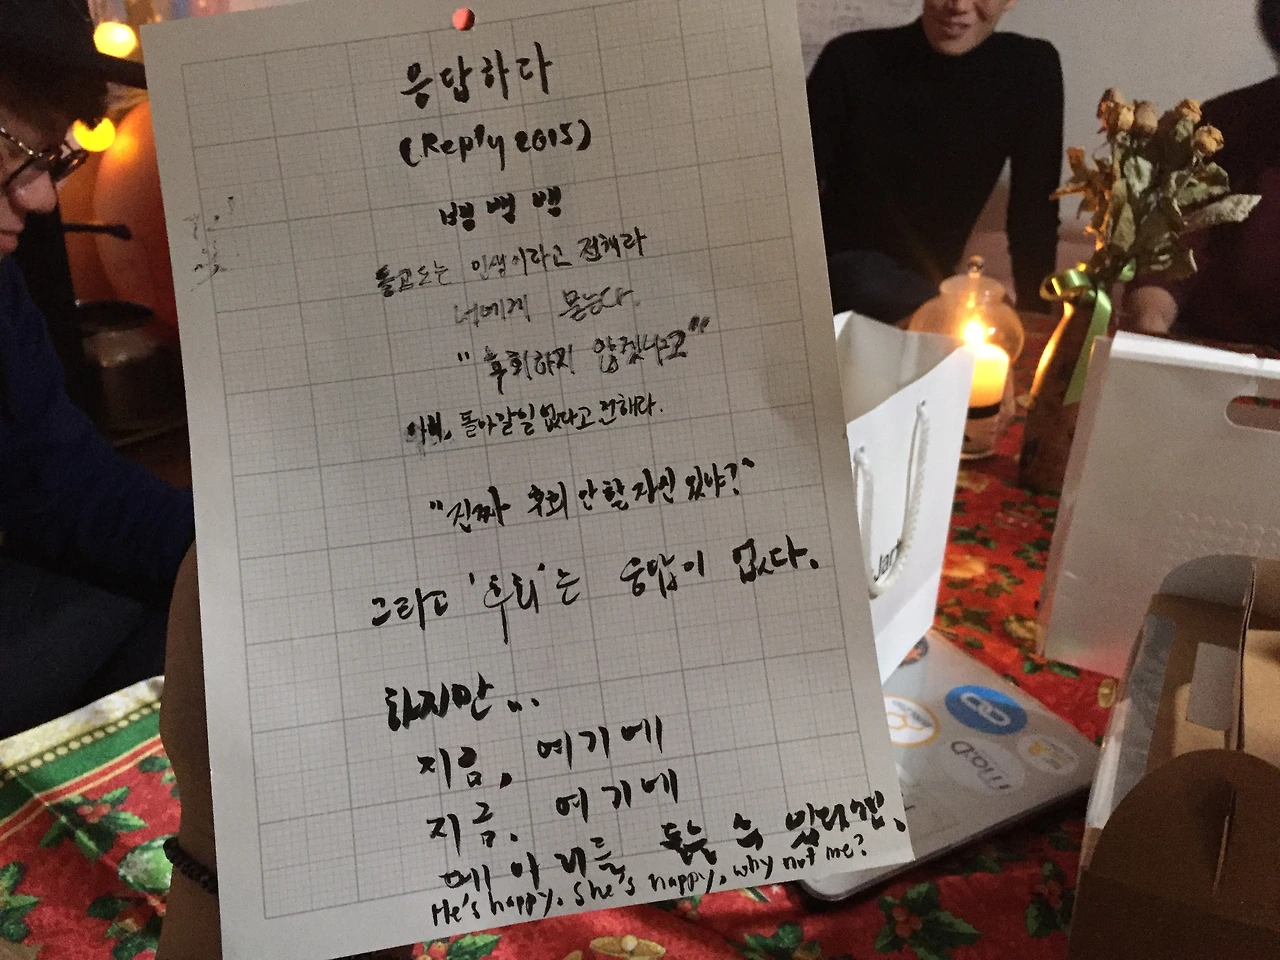 응답하다
(Reply 2015)
뱅 뱅 뱅
돌고도는 인생이라고 전해라
너에게 묻는다.
"후회하지 않겠냐고"
아서, 돌아갈일 없다고 전해라.
"진짜 후회 안할 자신 있어?"
그타고 '후회'는 응답이 없다.
하지만...
지금, 여기에
지금, 여기에
메아리를 들을 수 있다면,
He's happy, She's happy, why not me?
Jar
ma:D